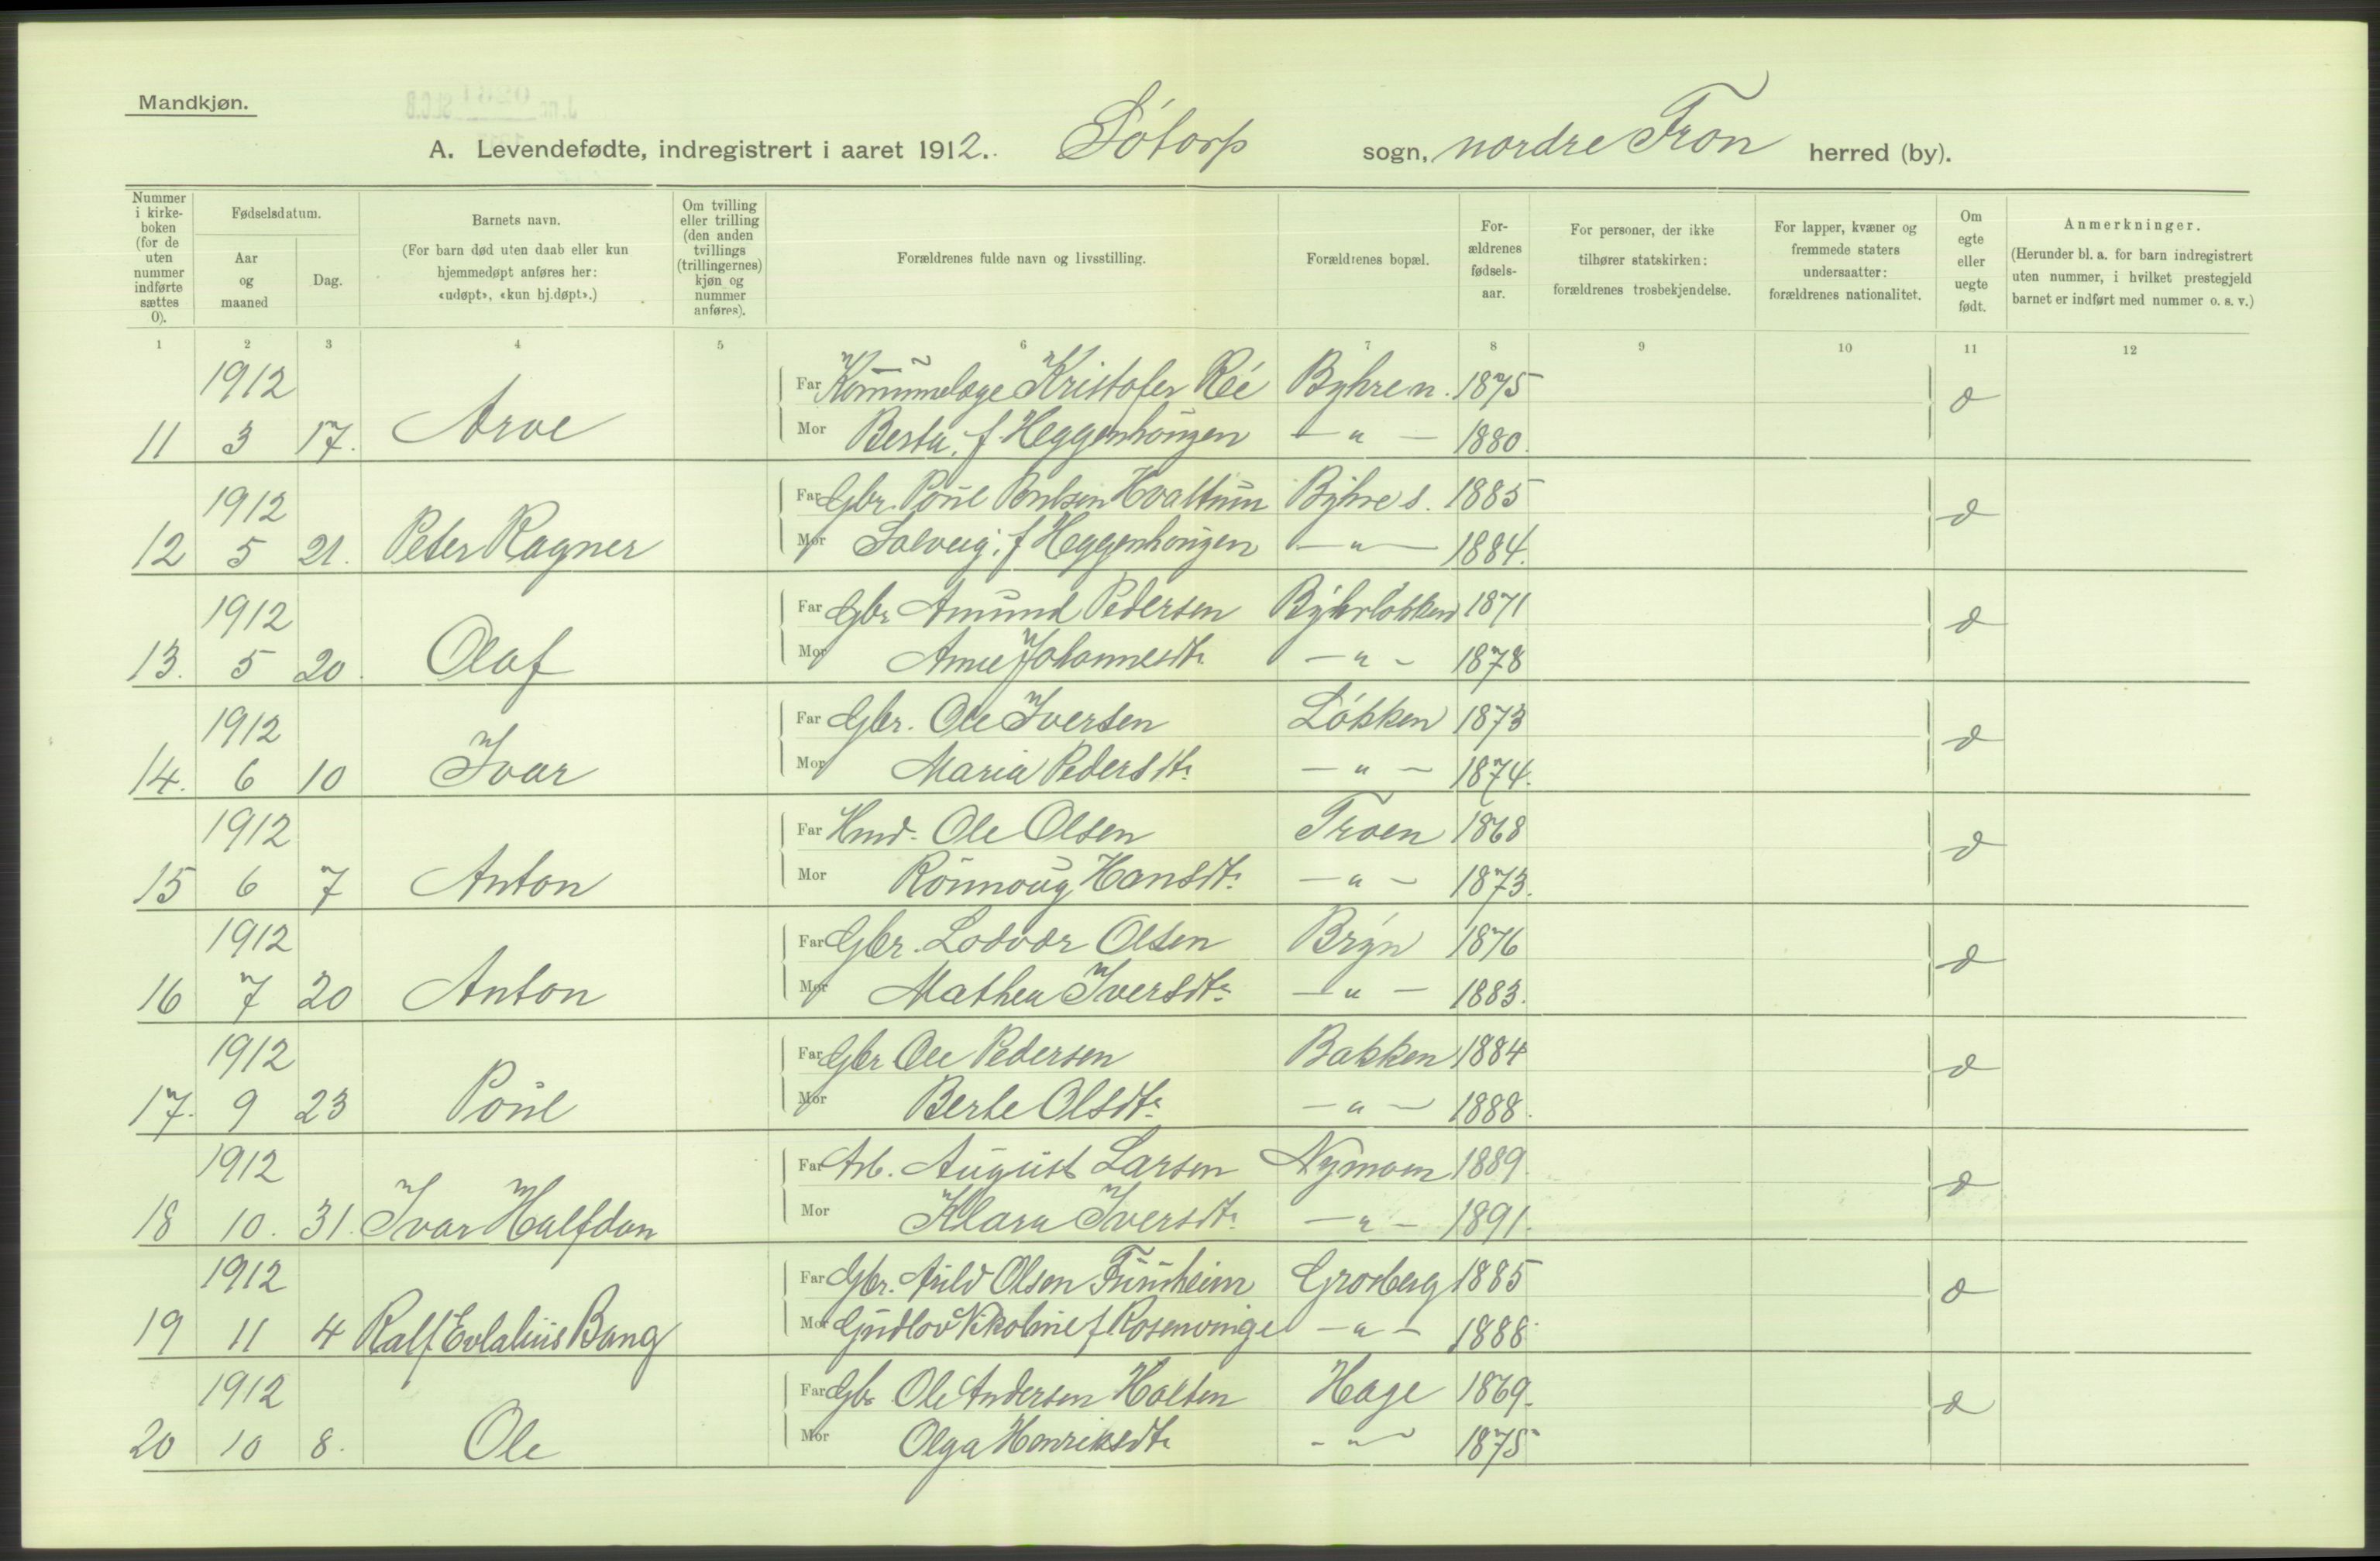 Mandkjøn.
A. Levendefødte, indregistrert i aaret 1912. Sótorp sogn, nordre Fron herred (by).
Nummer i kirke-boken (for de uten nummer indførte sættes 0).
Fødselsdatum.
Aar og maaned
Dag.
Barnets navn.
(For barn død uten daab eller kun hjemmedøpt anføres her: «udøpt», «kun hj.døpt».)
Om tvilling eller trilling (den anden tvillings (trillingernes) kjøn og nummer anføres).
Forældrenes fulde navn og livsstilling.
Forældrenes bopæl.
For-ældrenes fødsels-aar.
For personer, der ikke tilhører statskirken: forældrenes trosbekjendelse.
For lapper, kvæner og fremmede staters undersaatter: forældrenes nationalitet.
Om egte eller uegte født.
Anmerkninger.
(Herunder bl. a. for barn indregistrert uten nummer, i hvilket prestegjeld barnet er indført med nummer o. s. v.)
1 2 3 4 5 6 7 8 9 10 11 12
1912 Far Kristofer Rée Byhre n. 1875
11 3 17. Arve Mor Berta. f. Heggenhougen — " — 1880.
1912 Far Gbr. Poul Poulsen Hvattum Byhre s. 1885
12 5 21. Peter Ragner Mor Solveig. f Heggenhougen — " — 1884.
1912 Far Gbr Amund Pedersen 1871
13. 5 20. Olaf Mor Anne Johannesdtr — " — 1878
1912 Far Gbr. Ole Iversen Løkken 1873
14. 6 10 Ivar Mor Maria Pedersdtr — " — 1874.
1912 Far Hmd. Ole Olsen Troen 1868
15 6 7 Anton Mor Rønnoug Hansdtr. — " — 1873.
1912 Far Gbr. Lodvar Olsen Bryn 1876
16 7 20 Anton Mor Mathea Iversdtr. — " — 1883.
1912 Far Gbr Ole Pedersen Bakken 1884
17. 9 23 Poul Mor Berte Olsdtr. — " — 1888.
1912 Far Arb. August Larsen Nymoen 1889.
18 10. 31. Ivar Halfdan Mor Klara Iversdtr. — " — 1891.
1912 Far Gbr. Olsen 1885
19 11 4 Ralf Bang Mor Gudlov Nikoline f Rosenvinge — " — 1888
1912 Far Gbr Ole Andersen Hage 1869.
20 10 8. Ole Mor Olga Henriksdtr — " — 1875